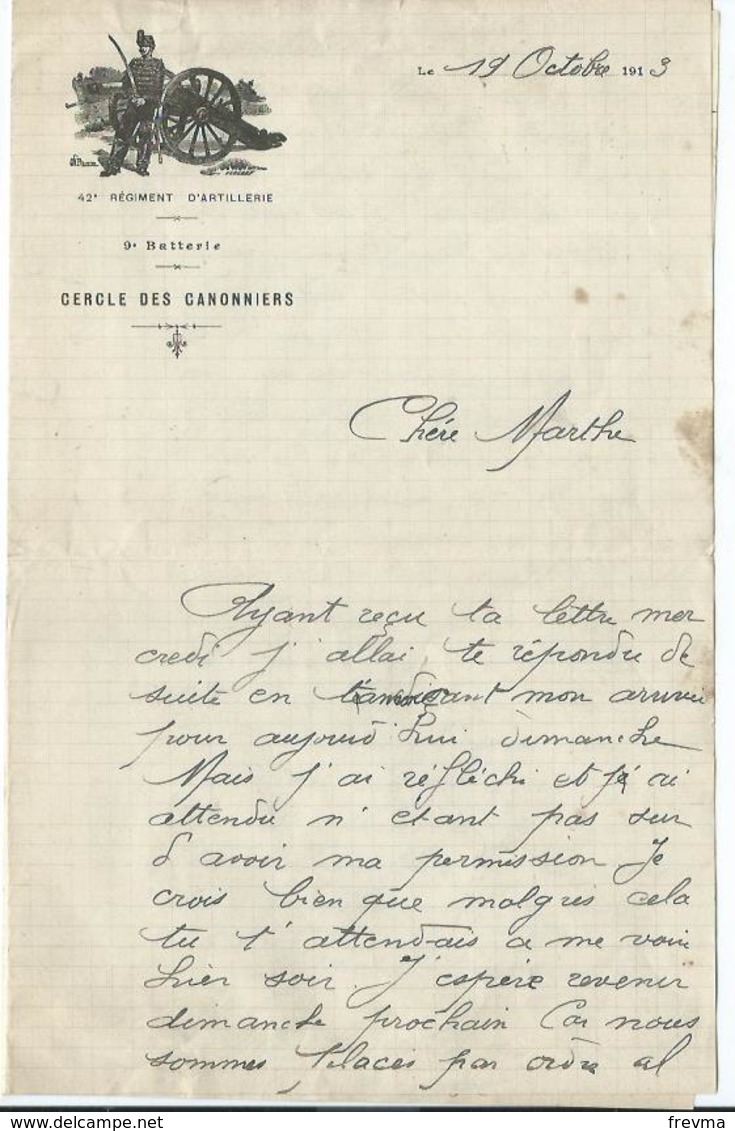 Le 19 Octobre 1913
42e RÉGIMENT D'ARTILLERIE
9e Batterie
CERCLE DES CANONNIERS
Chére Marthe
Ayant reçu ta lettre mer
credi j'allai te répondre de
suite en mon arrivée
pour aujourd'hui dimanche
Mais j'ai réfléchi et j'ai
attendu n'etant pas sur
d'avoir ma permission. Je
crois bien que malgres cela
tu t'attendais a me voir
hier soir. J'espère revenir
dimanche prochain Car nous
sommes placés par ordre al
frevma